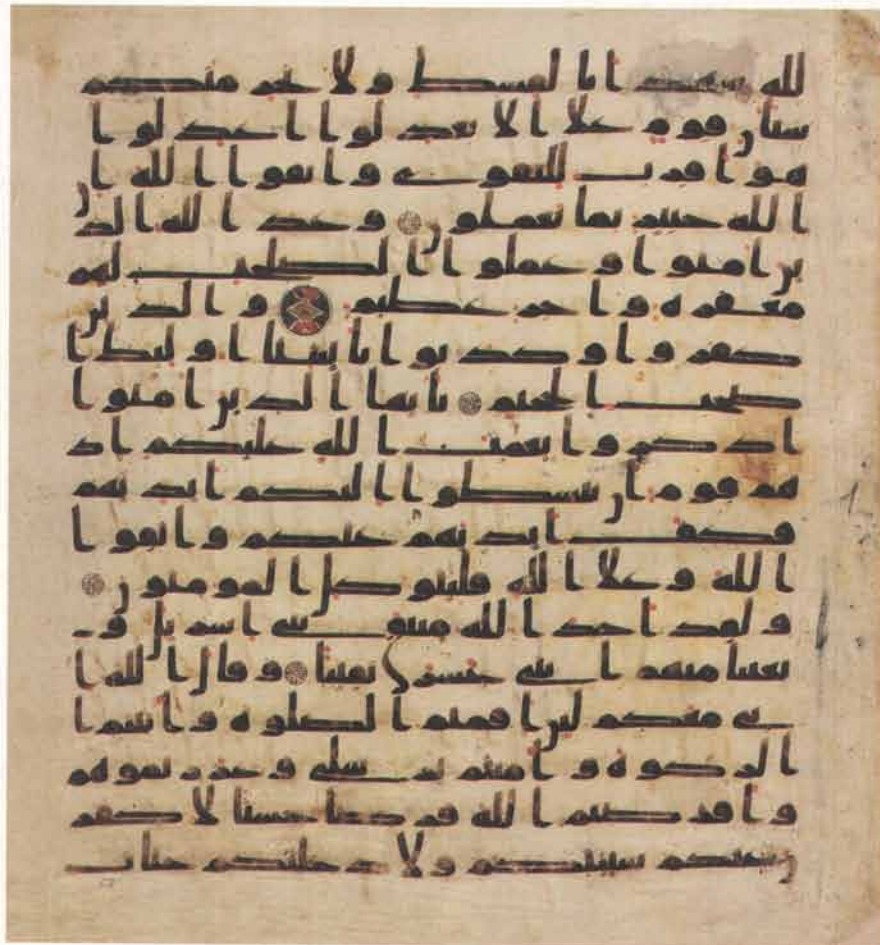 لله شهدا بالقسط ولا يجرمنكم
شنان قوم علا الا تعدلوا اعدلوا
هو اقرب للتقوى واتقوا الله ان
الله خبير بما تعملون وعد الله الذ
ين امنوا وعملوا الصلحت لهم
مغفرة واجر عظيم والذين
كفروا وكذبوا بايتنا اوليك ا
صحب الجحيم يايها الذين امنوا
اذكروا نعمت الله عليكم اذ
هم قوم ان يبسطوا اليكم ايديهم
فكف ايديهم عنكم واتقوا
الله وعلا الله فليتوكل المومنون
ولقد اخذ الله ميثق بني اسريل و
بعثنا منهم اثني عشر نقيبا وقال الله ا
ني معكم لين اقمتم الصلوة واتيتم
الزكوة وامنتم برسلي وعزرتموهم
واقرضتم الله قرضا حسنا لاكفر
ن عنكم سيتكم ولادخلنكم جنات